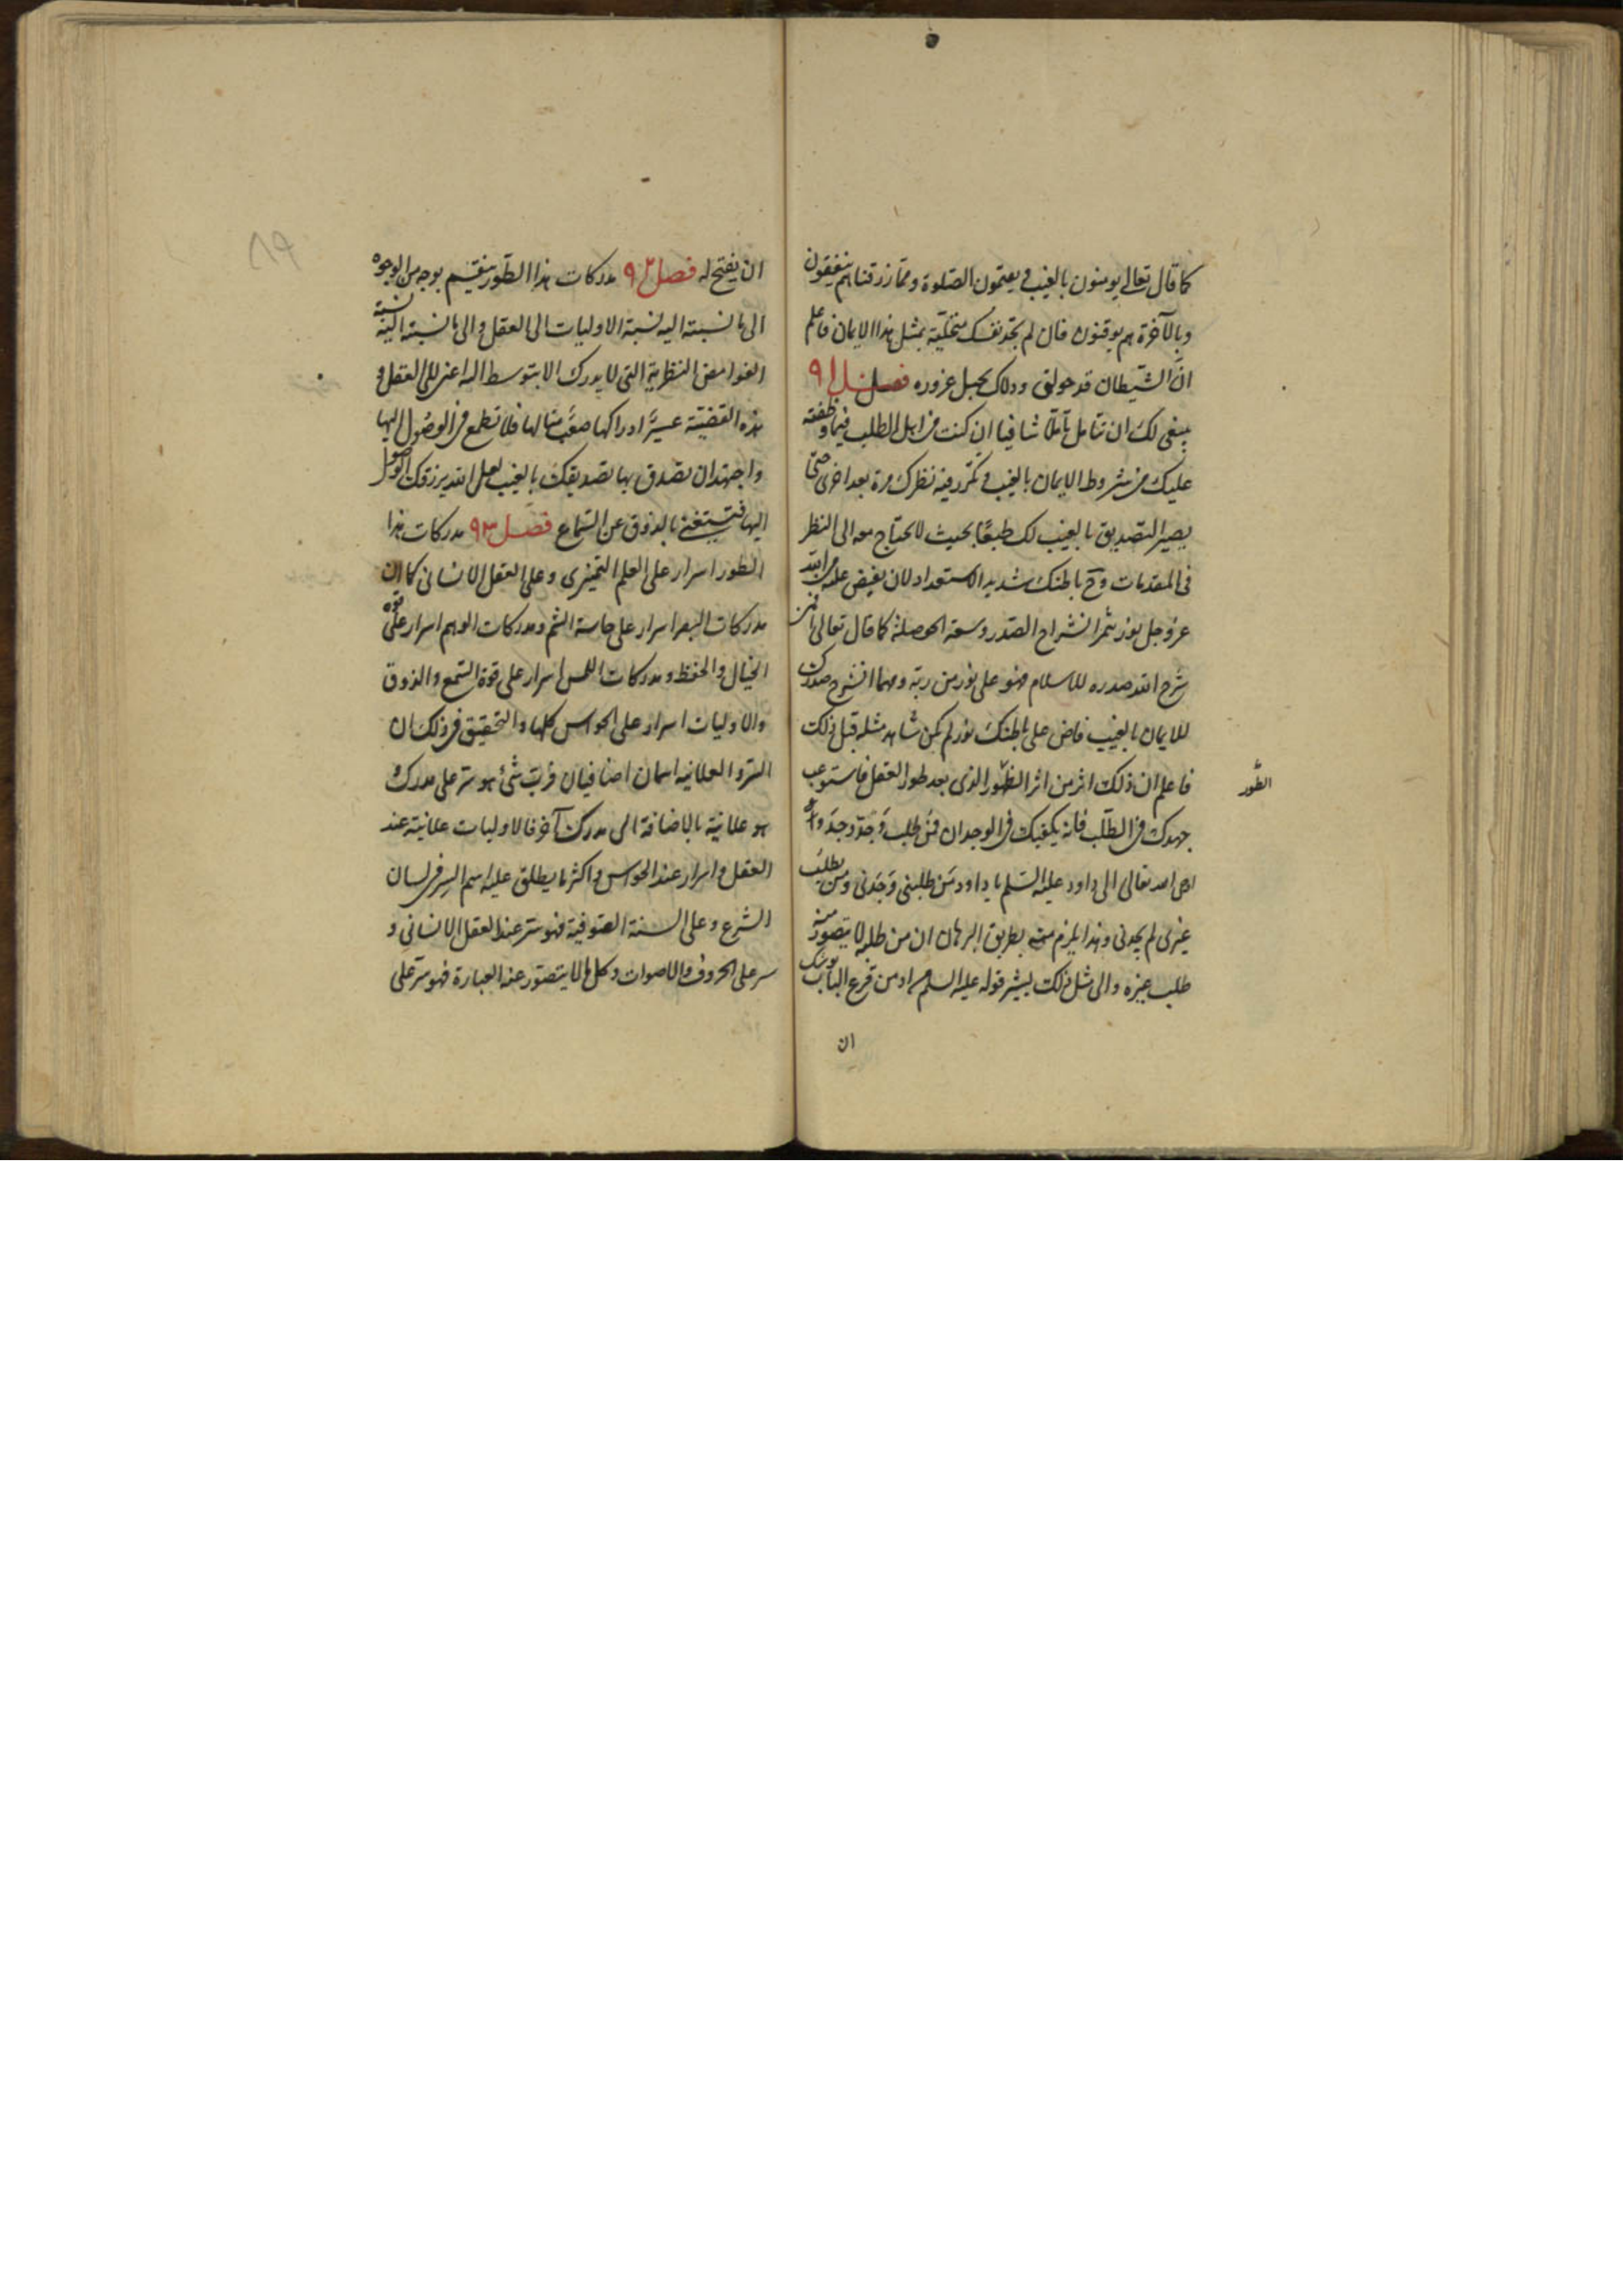 كما قال تعالى يومنون بالغيب و يقيمون الصلوة و ممّا رزقناهم ينفقون
وبالآخرة هم يوقنون فان لم تجد نفسك متحلّية بمثل هذا الايمان فاعلم
انّ الشيطان قد ودلاك بحبل غروره فصل ٩١
ينبغى لك ان تتامل تأمّلا شافيا ان كنت من اهل الطلب فيما وظفته
عليك من شروط الايمان بالغيب و تكرر فيه نظرك مرة بعد اخرى حتى
يصير التصديق بالغيب لك طبعًا بحيث لا تحتاج معه الى النظر
فى المقدمات و ح باطنك شديد الاستعداد لان يفيض عليه من الله
عز وجل نور يثمر انشراح الصدر وسعة الحوصلة كما قال تعالى افمن
شرح الله صدره للاسلام فهو على نور من ربّه و مهما انشرح صدرك
للايمان بالغيب فاض على باطنك نور لم تكن تشاهد مثله قبل ذلك
فاعلم ان ذلك اثر من اثر الطّور الذى بعد طور العقل فاستوعب
الطّور
جهدك فى الطلب فانه يكفيك فى الوجدان فمن طلب وَجَدّ وجدَ و
اوحى الله تعالى الى داود عليه السّلم يا داود مَن طلبنى وَجَدنى و من يطلب
غيرى لم يجدنى و هذا يلزم منه بطريق البرهان ان من طلبه لا يتصور منه
طلب غيره و الى مثل ذلك يشير قوله عليه السلم من قرع الباب يوشك
ان
ان يفتح له فصل ٩٢ مدركات هذا الطّور ينقسم بوجه من الوجوه
الى ما نسبته اليه نسبة الاوليات الى العقل و الى ما نسبته اليه نسبة
الغوامض النظرية التى لا يدرك الا بتوسط الى العقل و
هذه القضيّة عسيرٌ ادراكها صعبٌ منالها فلا تطمع فى الوصُول اليها
واجتهد ان تصدق بها تصديقك بالغيب لعل الله يرزقك الوصول
اليها فتستغنى بالذوق عن السّماع فصل ٩٣ مدركات هذا
الطور اسرار على العلم التميزى وعلى العقل الانسانى كما ان
مدركات البصر اسرار على حاسة الشم و مدركات الوهم اسرار على قوة
الخيال و الحفظ و مدركات اللمس اسرار على قوة السّمع و الذوق
والاوليات اسرار على الحواس كلها و التحقيق فى ذلك ان
السّر و العلانيه اسمان اضافيان فربّ شئ هو سّر على مدرك
هو علانيّة بالاضافة الى مدرك آخر فالاوليات علانية عند
العقل و اسرار عند الحواس و اكثر ما يطلق عليه اسم السِر فى لسان
الشرع و على السنة الصّوفية فهو سّر عند العقل الانسانى و
سر على الحروف والاصوات و كل ما لا يتصوّر عنه العبارة فهو سّر على